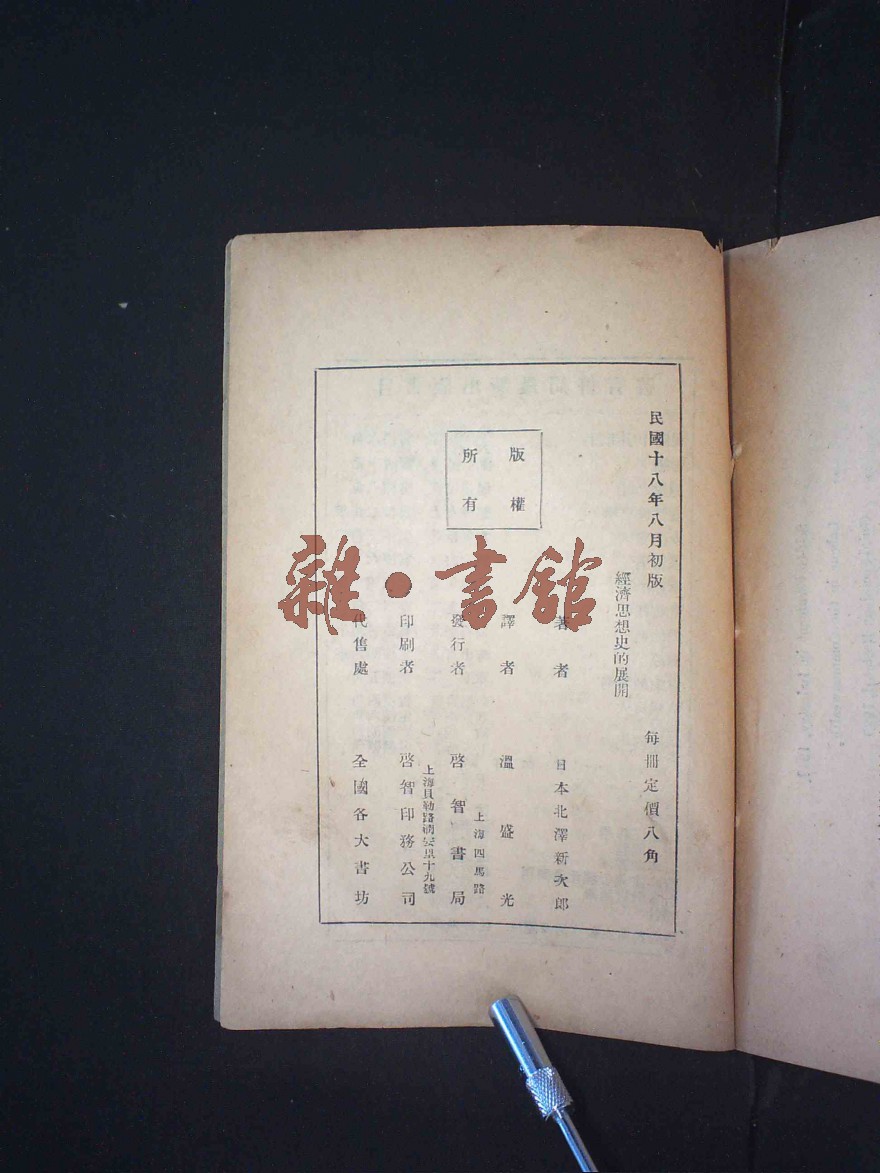 民國十八年八月初版
每冊定價八角
經濟思想史的展開
著者 日本北澤新次郎
版權
所有
譯者 溫盛光
上海四馬路
發行者 啓智書局
上海貝勒路
十九號
印刷者 啓智印務公司
代售處 全國各大書坊
雜·書館